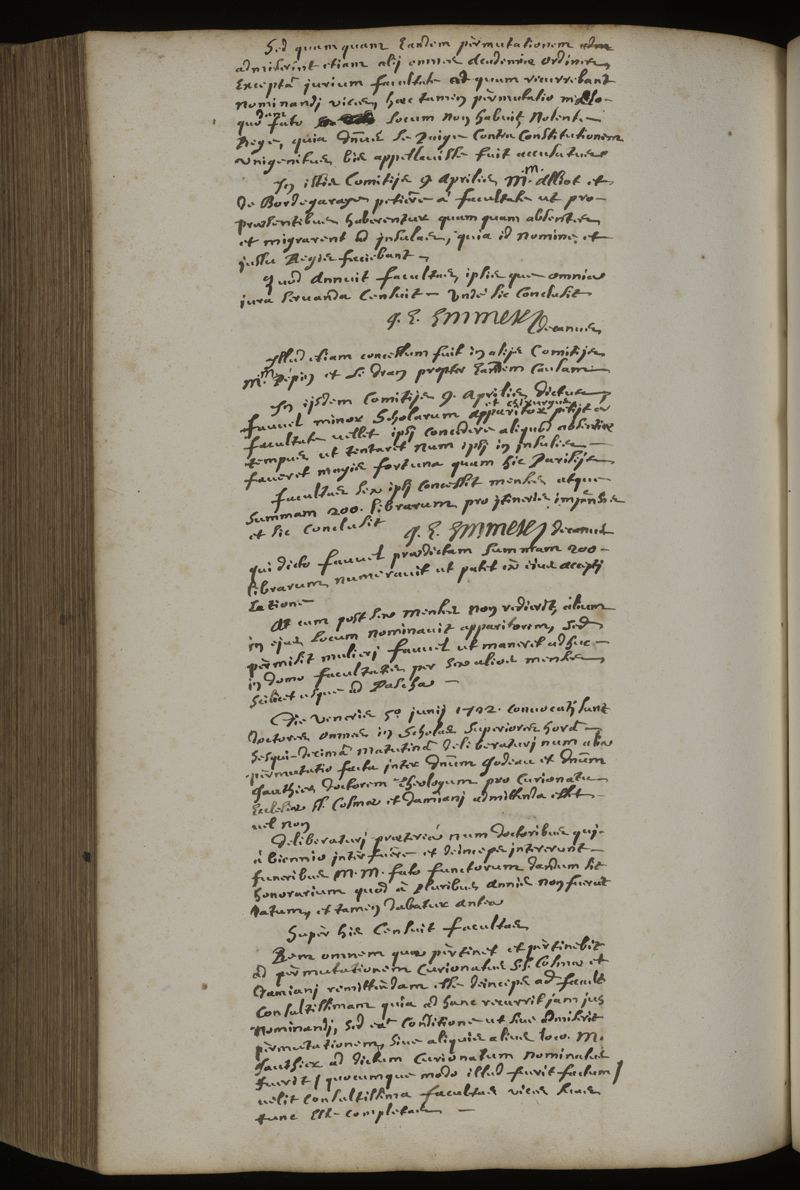 Sed quam quam Eandem permutationem
admiserint etiam alij omnes Academiæ ordines,
Exceptâ jurium facultate ad quam recurrebant
nominandj vices, hæc tamen permutatio
quo dam fato locum non habuit Nolente
Rege, quia dnus Le Paige Contra Constitutionem
Unigenitus bis appellavisse fuit accusatus
In istis Comitijs 9 Aprilis, Mm. Alliot et
de Bordegaraye petiêre à facultate ut pro
præsentibus haberentur quam quam absentes
et migrarent ad jnsulas, quia id nomine et
jussu Regis faciebant
quod Annuit facultas, ipsis que omnia
jura servanda Censuit — Undè sic Conclusit
J. E. Emmerez decanus
Illud etiam concessum fuit in alijs Comitijs
Mm. Pépin et Le dran propter Eandem Causam
In ijsdem Comitijs 9. Aprilis, dictus
fauvel minor Scholarum apparitor et chirurgus petijt à
facultate vellet ipsj concedere aliquod absentiæ
tempus ut tentaret num ipsj in jnsulis
faveret magis fortuna quam hic Parisijs
facultas sex ipsj Concessit menses atque
Summam 200. librarum pro jtineris jmpensis
et sic Conclusit J. E. Emmerez decanus
qui dicto fauvel prædictam Summam 200
librarum numeravit ut patet ex ejus accepti
latione
At cum post sex menses non redierit, alium
in ejus locum nominavit apparitorem, Sed
permisit mulierj fauvel ut maneret adhuc
in domo facultatis per sex alios menses
scilicet usque ad Pascha —
Die Veneris 5o junij 1722. convocatj sunt
doctores omnes in Scholas Superiores horâ
sesqui-decimâ matutinâ deliberaturj num
permutatio facta jnter dnum Godeau et dnum
Gauthier doctorem theologum pro Curionatu
Ecclesiæ SS. Cosmæ et damianj admittenda esset
vel non
deliberaturj prætereà num doctoribus qui
à biennio jnterfuêre et deinceps jntererunt
funeribus M. M. fato functorum dandum sit
honorarium quod à pluribus annis non fuerat
datum, et tamen dabatur antea
Super his Censuit facultas
Rem omnem quæ pertinet et pertinebit
ad permutationem Curionatus SS. Cosmæ et
Damianj remittendam esse deinceps ad facult
Consultissimam quia ad hanc recurrit jam jus
Nominandj, sed eâ Conditione ut sive admiserit
permutationem, sive aliquis alius loco M.
Gauthier ad dictum Curionatum nominatus
fuerit / quocumque modo illud fuerit factum /
velit Consultissima facultas vices suas
tunc esse completas —